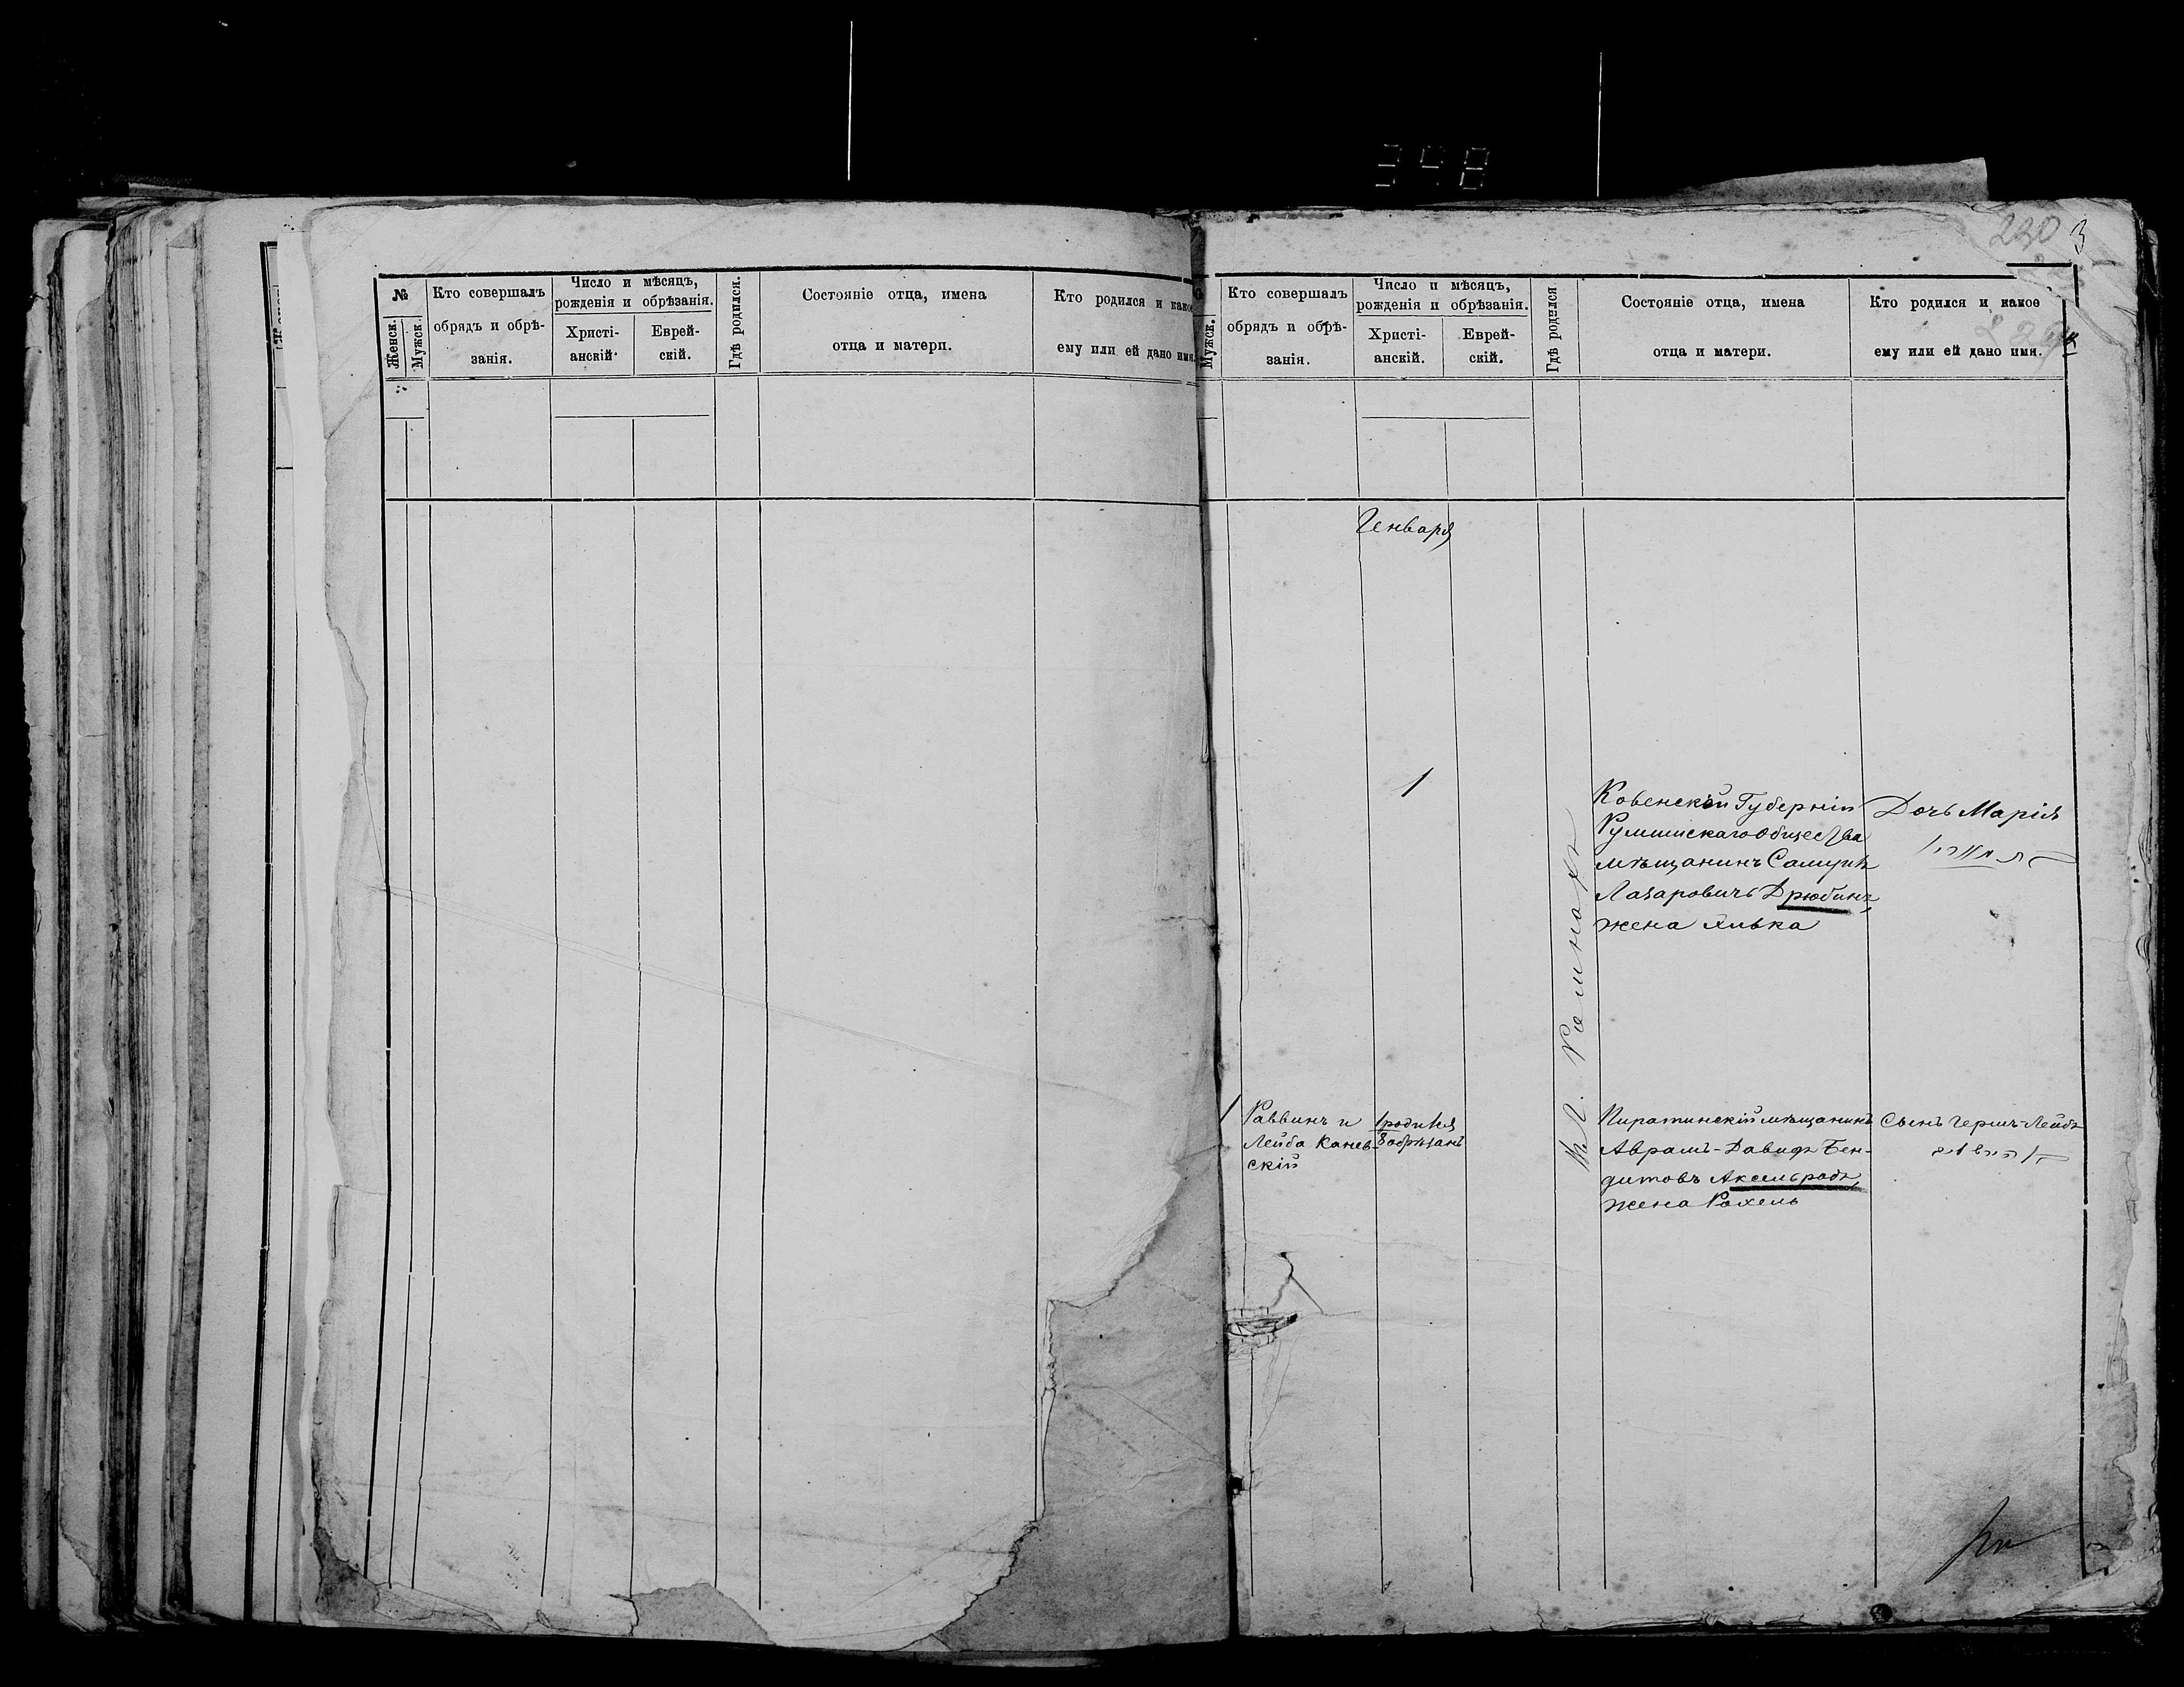 348
230
3
№
Женск.
Мужск.
Кто совершалъ
обрядъ и обрѣ-
занія.
Число и мѣсяцъ,
рожденія и обрѣзанія.
Христі-
анскій.
Еврей-
скій.
Гдѣ родился.
Состояніе отца, имена
отца и матери.
Кто родился и какое
ему или ей дано имя.
Мужск.
Кто совершалъ
обрядъ и обрѣ-
занія.
Число и мѣсяцъ,
рожденія и обрѣзанія.
Христі-
анскій.
Еврей-
скій.
Гдѣ родился
Состояніе отца, имена
отца и матери.
Кто родился и какое
ему или ей дано имя.
Генваря
1
Ковенской Губерніи
Румшискаго Общества
мѣщанинъ Самуилъ
Лазаровичъ Дрюбинъ,
жена Хивка
Дочь Марія
Въ Г. Ромнахъ
1
Раввинъ и
Лейба Канев-
скій
1 родился
8 обрѣзанъ
Пирятинскій мѣщанинъ
Абрамъ-Давидъ Бен-
дитовъ Аксельродъ,
жена Рохель
Сынъ Гершъ-Лейбъ